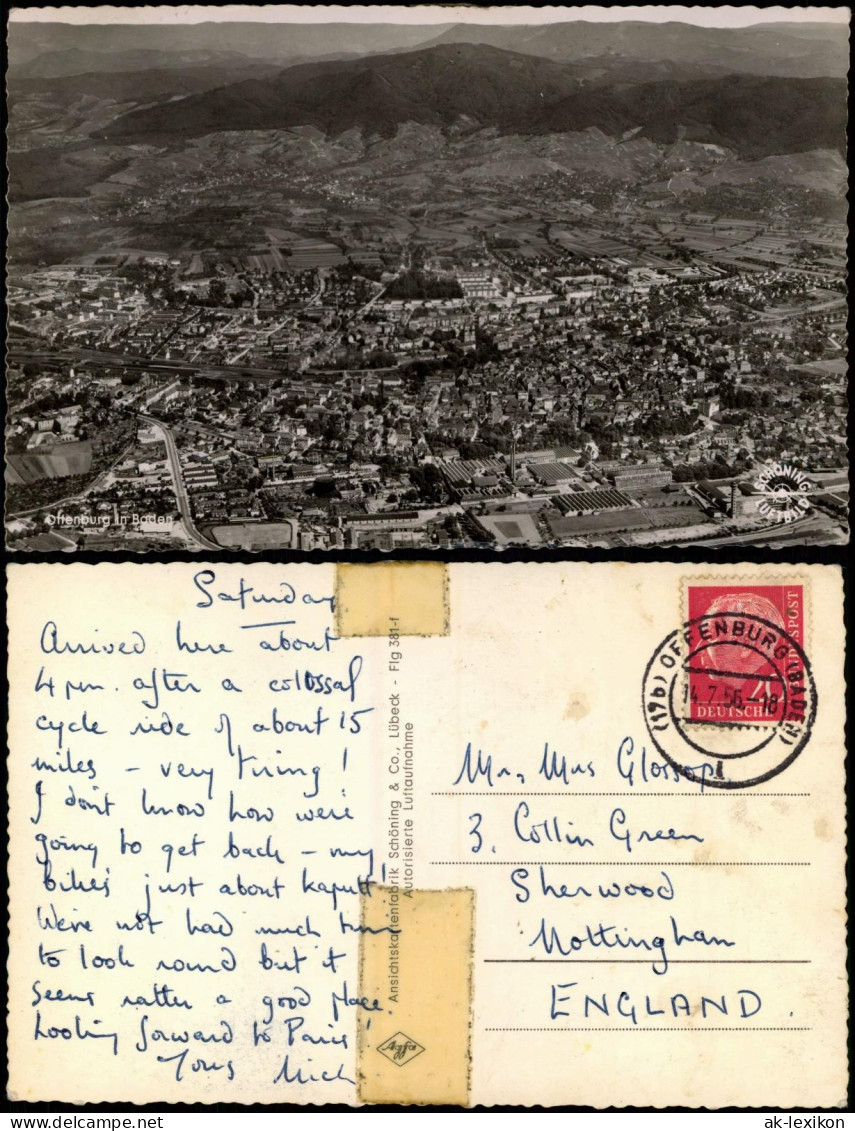 Offenburg in Baden
SCHÖNING
LUFTBILD
Saturday
Arrived here about
4 pm. after a colossal
cycle ride of about 15
miles - very tiring!
I don't know how we're
going to get back - my
bike's just about kaputt!
We've not had much time
to look round but it
seems rather a good place.
Looking forward to Paris!
Yours Mich
Ansichtskartenfabrik Schöning & Co., Lübeck - Flg 381-f
Autorisierte Luftaufnahme
Agfa
DEUTSCHE
(17b) OFFENBURG (BADEN)
14.7.56-18
Mr, Mrs Glossop,
3, Collin Green
Sherwood
Nottingham
ENGLAND.
www.ansichtskarten-lexikon.de
ak-lexikon